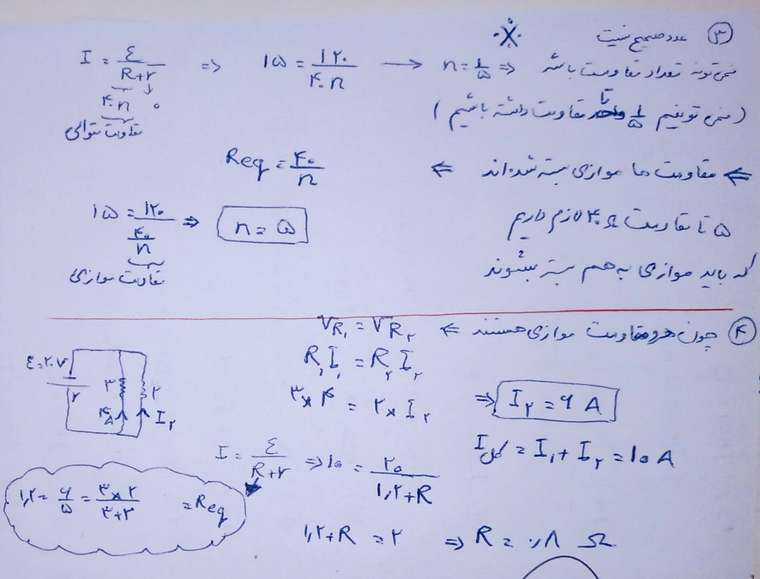 ③ عدد صحیح نیست
I = ε / R+r => ۱۵ = ۱۲۰ / ۴۰n → n = ۱/۵ => نمی تونه تعداد مقاومت باشد
۴۰n ۰
مقاومت متوالی
(نمی تونیم ۱/۵ تا مقاومت داشته باشیم)
<= مقاومت ها موازی بسته شده اند <= Req = ۴۰/n
۱۵ = ۱۲۰ / ۴۰/n => n = ۵
مقاومت موازی
۵ تا مقاومت ۴۰Ω لازم داریم
که باید موازی به هم بسته بشوند
④ چون دو مقاومت موازی هستند <= VR₁ = VR₂
R₁I₁ = R₂I₂
۳×۴ = ۲×I₂ => I₂ = ۶ A
I کل = I₁ + I₂ = ۱۰ A
ε=۲۰V
r
۳
۲
۴A
I₂
I = ε / R+r => ۱۰ = ۲۰ / ۱,۲+R
۱,۲ = ۶/۵ = ۳×۲ / ۳+۲ = Req
۱,۲+R = ۲ => R = ۰,۸ Ω